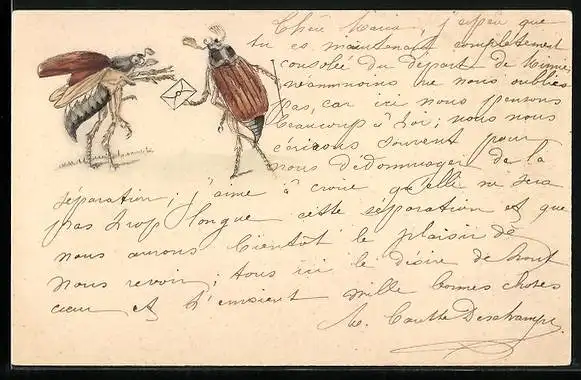 Chère Maria, j'espère que
tu es maintenant complètement
consolée du départ de Mimie,
néanmoins ne nous oublies
pas, car ici nous pensons
beaucoup à toi; nous nous
écrirons souvent pour
nous dédommager de la
séparation; j'aime à croire qu'elle ne sera
pas trop longue cette séparation et que
nous aurons bientôt le plaisir de
nous revoir; tous ici le désire de tout
cœur et t'envoient mille bonnes choses
Deschamps